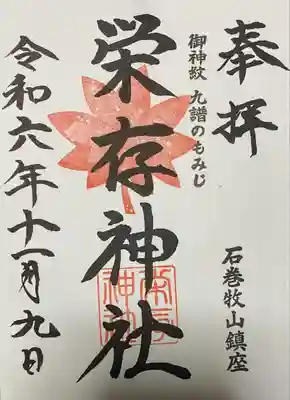 奉拝
石巻牧山鎮座
御神紋 九譜のもみじ
栄存神社
令和六年十一月九日